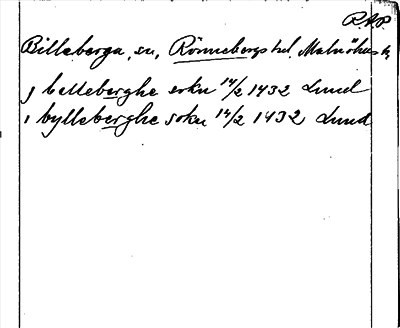 R.A.P.
Billeberga, sn, Rönnebergs hd. Malmöhus l.
j belleberghe sokn 14/2 1432 Lund
i bylleberghe sokn 14/2 1432 Lund